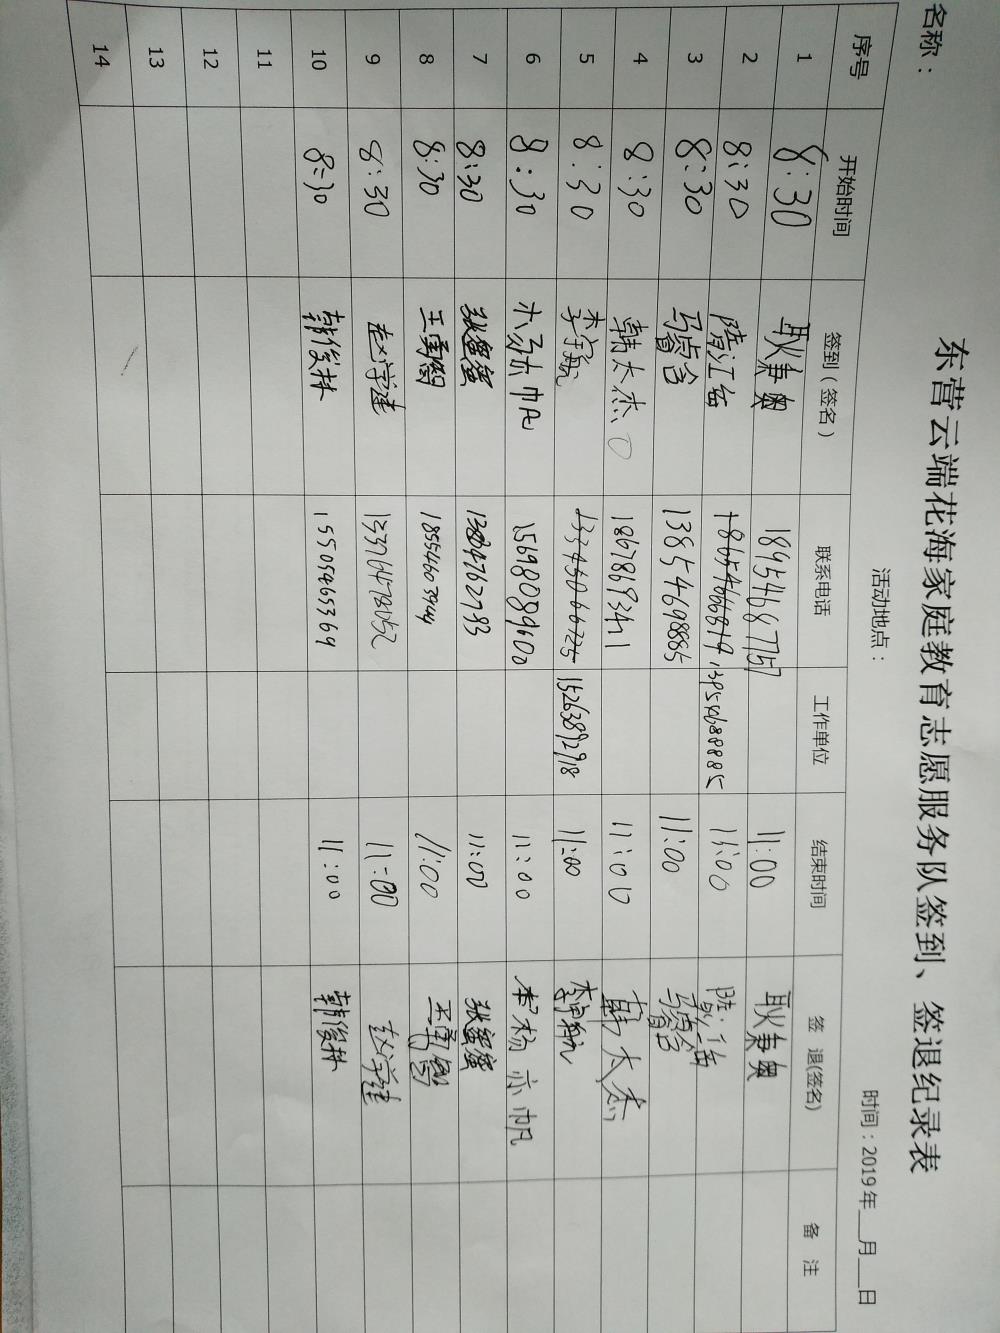 东营云端花海家庭教育志愿服务队签到、签退纪录表
名称： 活动地点： 时间：2019年__月__日
序号 开始时间 签到（签名） 联系电话 工作单位 结束时间 签 退(签名) 备 注
1 8:30 耿秉奥 18954687757 11:00 耿秉奥
2 8:30 18654666819 13954688885 11:00
3 8:30 马睿含 13854698885 11:00 马睿含
4 8:30 韩太杰 18678693411 11:00 韩太杰
5 8:30 李宇航 15263892918 11:00 李宇航
6 8:30 15698089600 11:00 李杨亦帆
7 8:30 张蜜蜜 11:00 张蜜蜜
8 8:30 11:00
9 8:30 赵学建 11:00 赵学建
10 8:30 韩俊林 15505465369 11:00 韩俊林
11
12
13
14